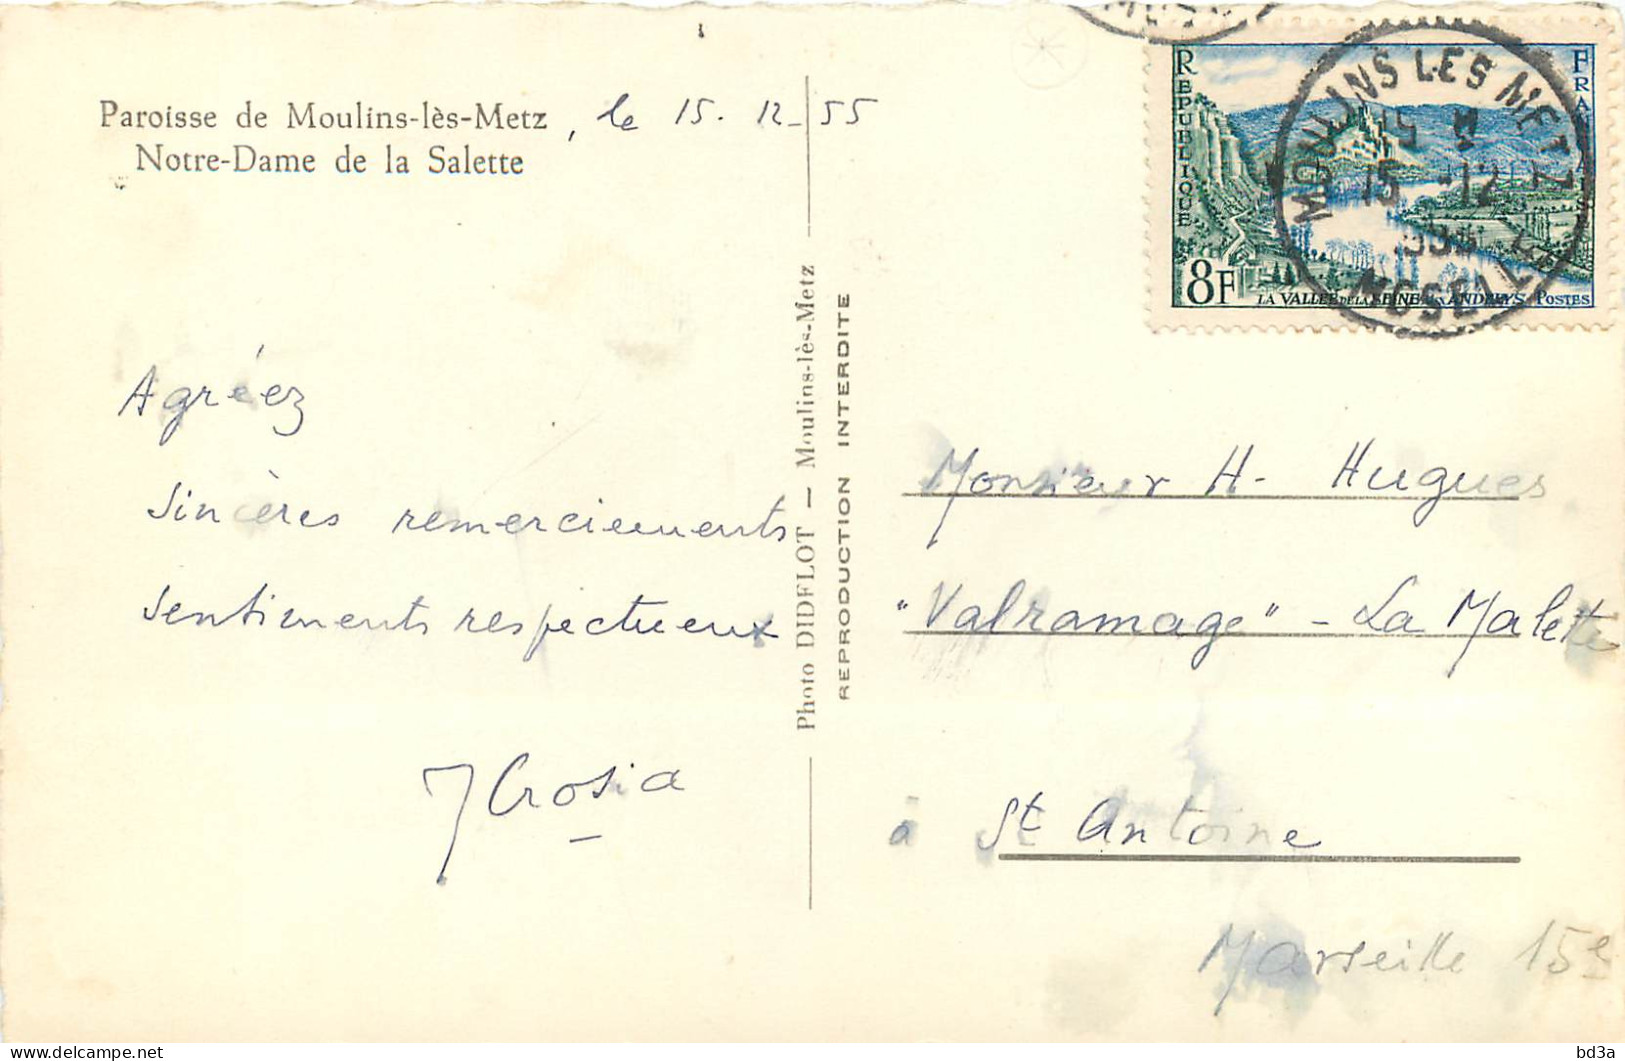 Paroisse de Moulins-lès-Metz, le 15. 12_55
Notre-Dame de la Salette
Agréez
sincères remerciements
sentiments respectueux
J Crosia
Photo DIDFLOT — Moulins-lès-Metz
REPRODUCTION INTERDITE
REPUBLIQUE
FRANÇAISE
8F
LA VALLEE DE LA SEINE AUX ANDELYS POSTES
MOULINS LES METZ
15 H
15 -12
MOSELLE
Monsieur H- Hugues
"Valramage" - La Malette
à St Antoine
Marseille 15e
bd3a